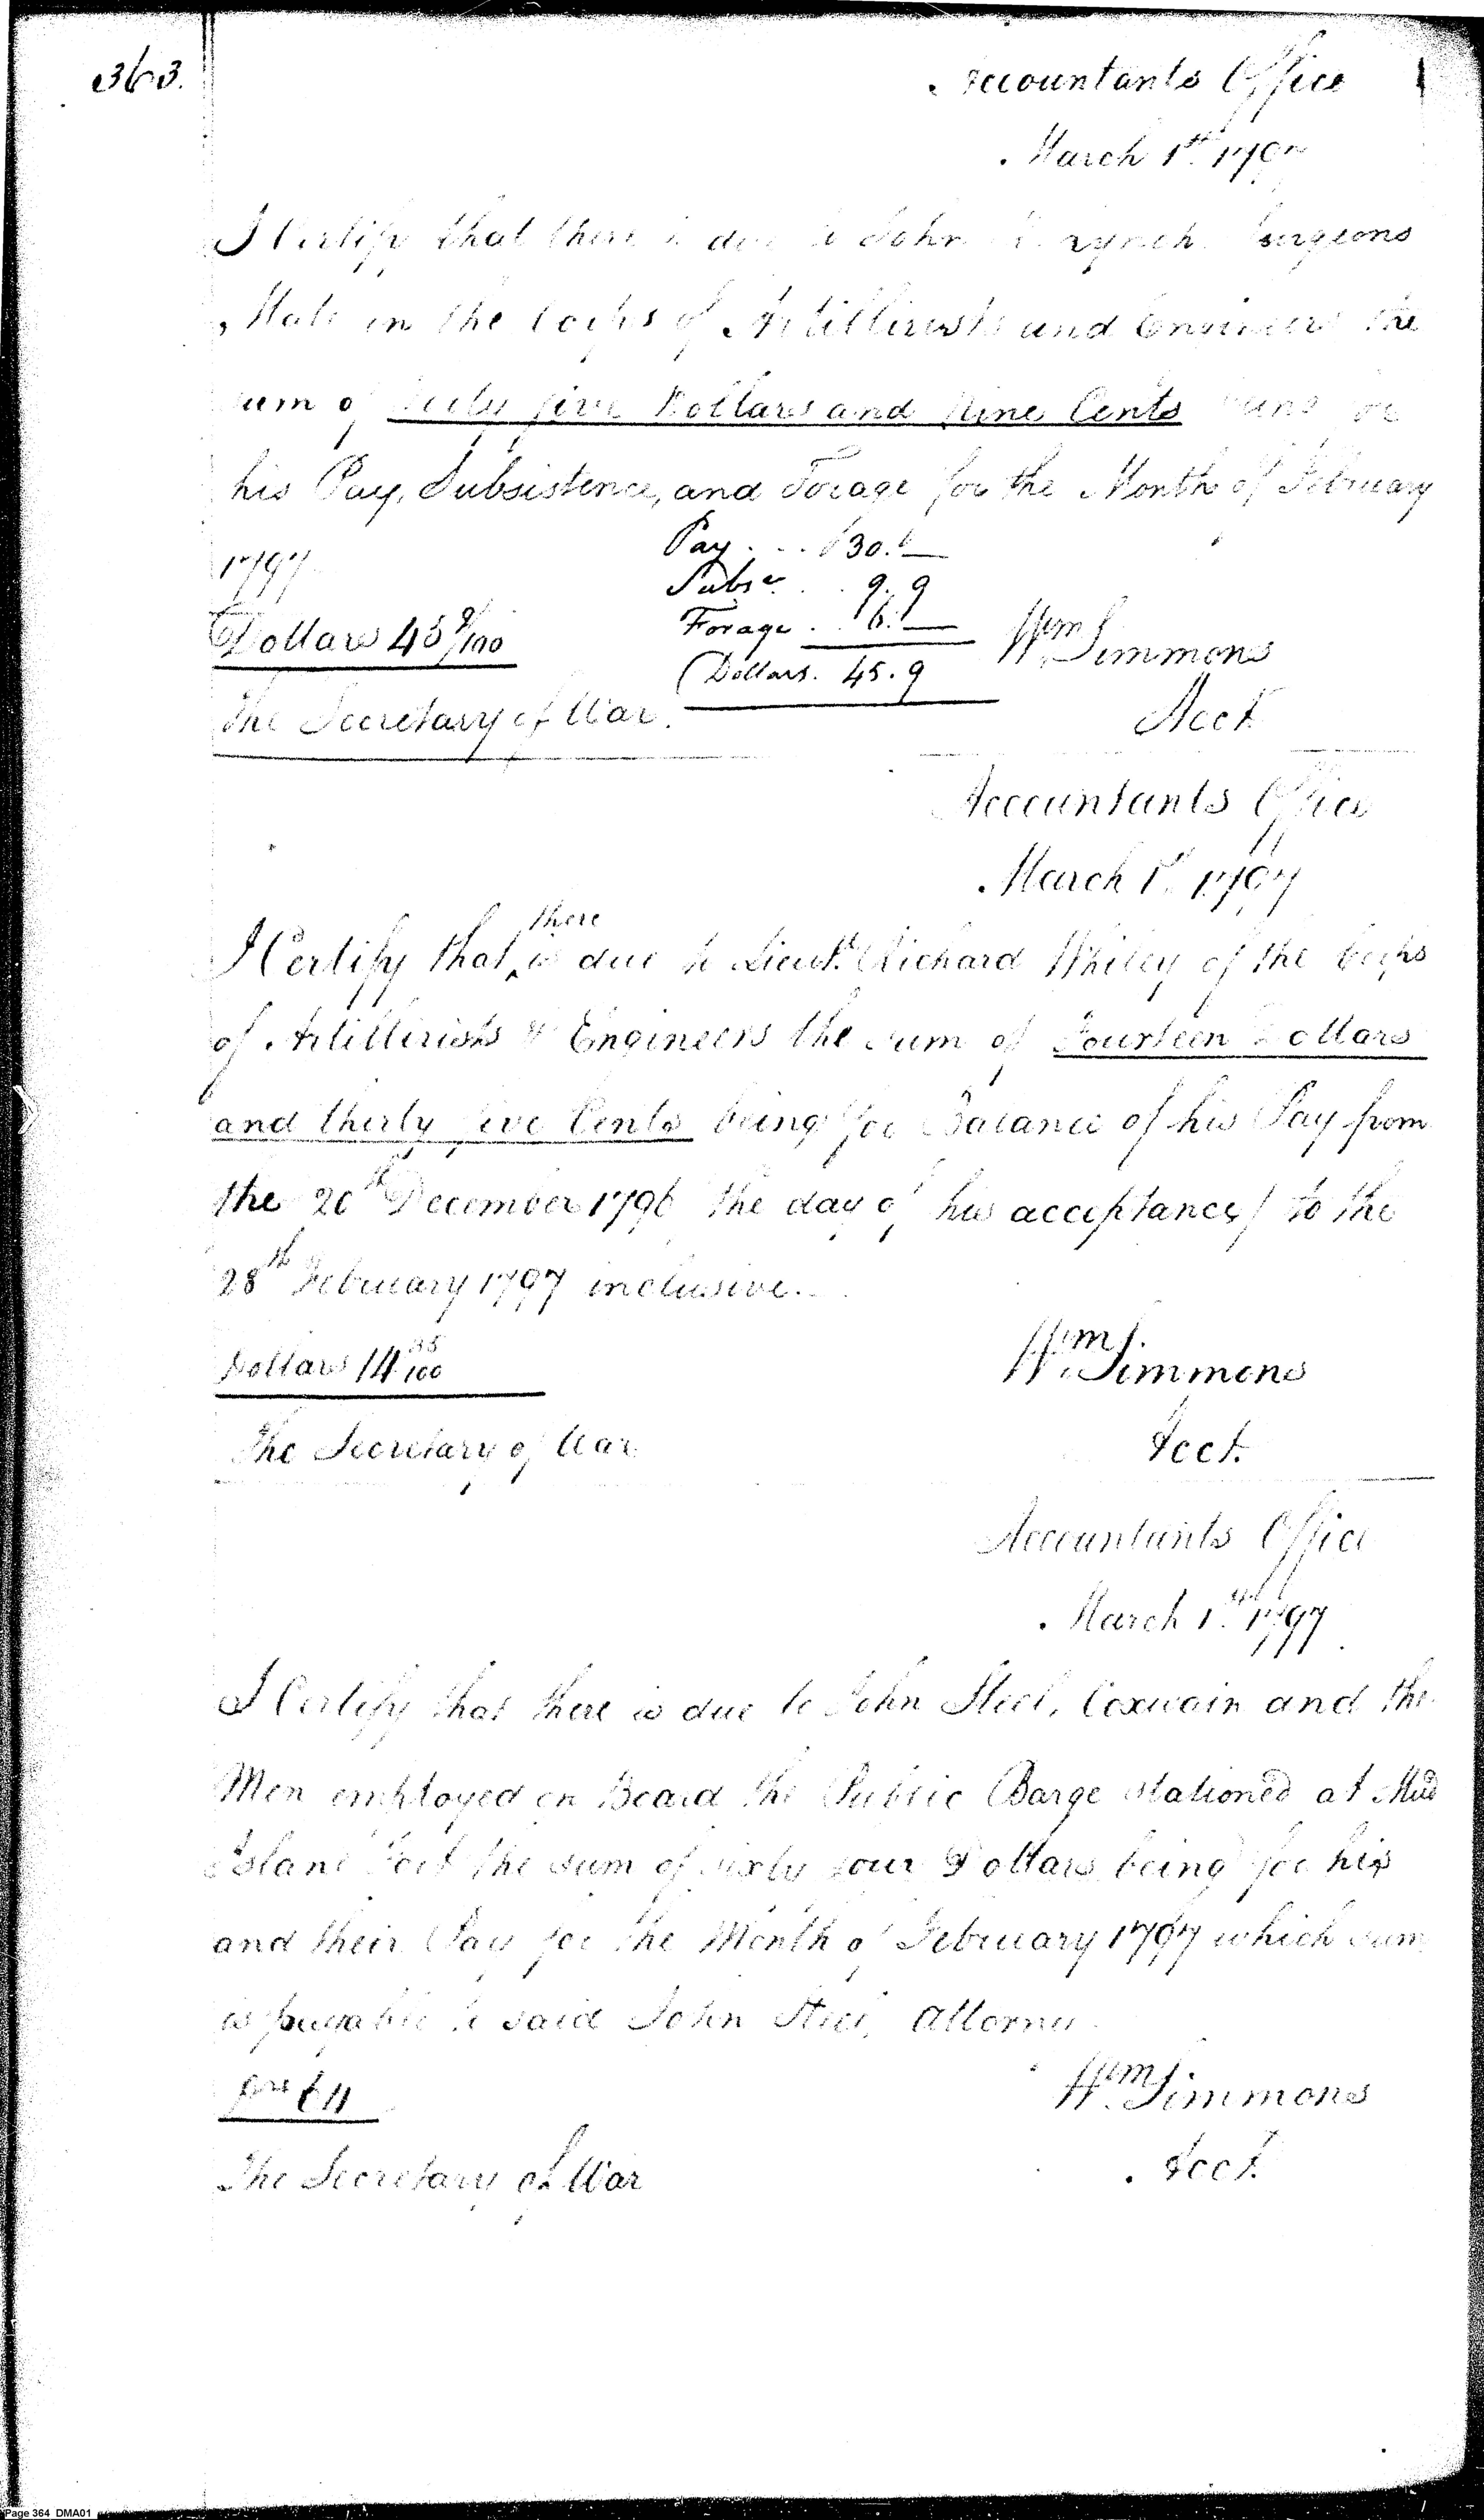 363.
Accountants Office
March 1st. 1797
I Certify that there is due to John Lynch Surgeons
Mate in the Corps of Artillerists and Engineers the
sum of forty five Dollars and Nine Cents being for
his Pay, Subsistence, and Forage for the Month of February
1797
Pay . . . $30. —
Subse. . . 9. 9
Forage . . 6. —
Dollars 45 9/100
(Dollars. 45. 9
Wm Simmons
The Secretary of War.
Acct.
Accountants Office
March 1st. 1797
I Certify that there is due to Lieut. Richard Whiley of the Corps
of Artillerists & Engineers the sum of Fourteen Dollars
and thirty five Cents being for Balance of his Pay from
the 20th December 1796 the day of his acceptance) to the
28th February 1797 inclusive.
Dollars 14 35/100
Wm Simmons
The Secretary of War
Acct.
Accountants Office
March 1st. 1797
I Certify that there is due to John Steel, Coxwain and the
Men employed on Board the Public Barge stationed at Mud
Island Fort the sum of sixty four Dollars being for his
and their Pay for the Month of February 1797 which sum
is payable to said John Steel, Attorney.
Drs 64
Wm Simmons
The Secretary of War
Acct.
Page 364 DMA01